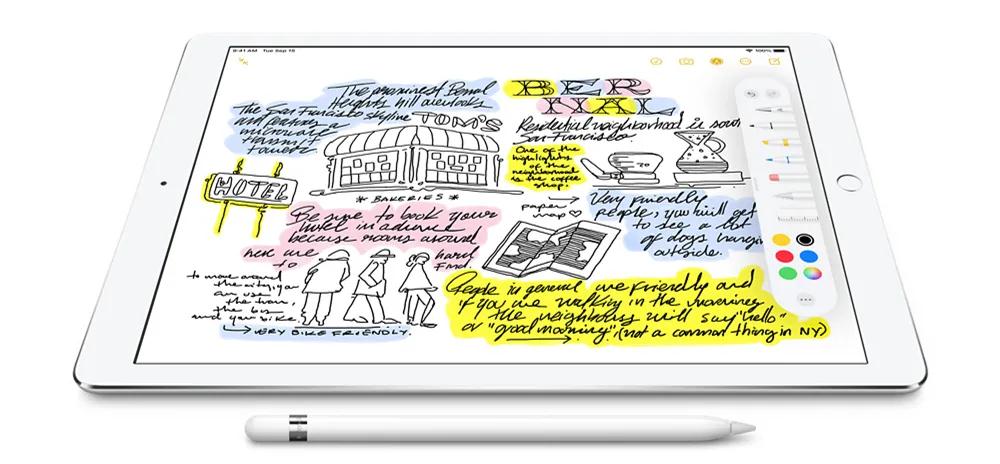 9:41 AM Tue Sep 18
100%
The
Heights hill overlooks
The San Francisco skyline
and
a
microwave
TOM'S
BER
NAL
Residential neighborhood in
San Francisco.
One of the
highlights
of the
neighborhood
is the coffee
shop.
HOTEL
* BAKERIES *
paper
map
Very friendly
people, you will get
to see a lot
of dogs
outside.
Be sure to book your
hotel in advance
because rooms around
here are
hard
to
find
to move around
the city, you
can use
the train,
the bus
and your bike.
VERY BIKE FRIENDLY.
People in general are friendly and
if you are walking in the morning
the neighbors will say "hello"
or "good morning". (not a common thing in NY)